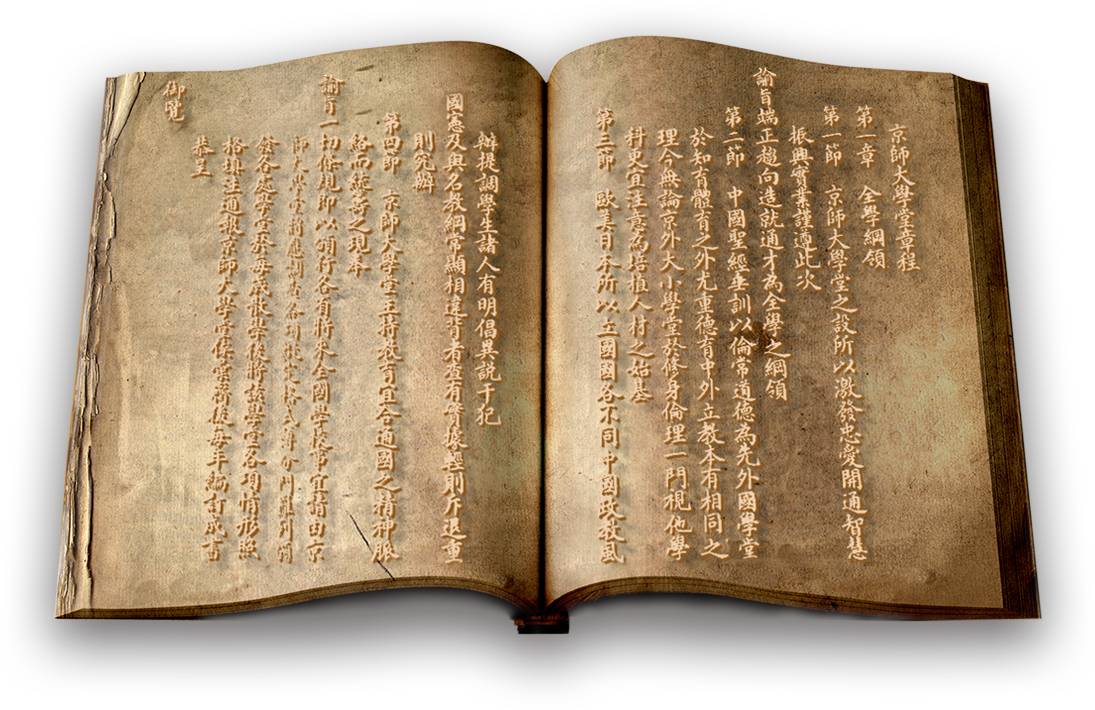 京師大學堂章程
第一章 全學綱領
第一節 京師大學堂之設所以激發忠愛開通智慧
振興實業謹遵此次
諭旨端正趨向造就通才為全學之綱領
第二節 中國聖經垂訓以倫常道德為先外國學堂
於知育體育之外尤重德育中外立教本有相同之
理今無論京外大小學堂於修身倫理一門視他學
科更宜注意為培植人材之始基
第三節 歐美日本所以立國國各不同中國政教風
辦提調學生諸人有明倡異說干犯
國憲及與名教綱常顯相違背者查有實據輕則斥退重
則究辦
第四節 京師大學堂主持教育宜合通國之精神脈
絡而統籌之現奉
諭旨一切條規即以頒行各省將來全國學校事宜請由京
師大學堂將應調查各項擬定格式簿分門羅列頒
發各處學堂於每歲散學後將該學堂各項情形照
格填注通報京師大學堂俟彙齊後每年編訂成書
恭呈
御覽